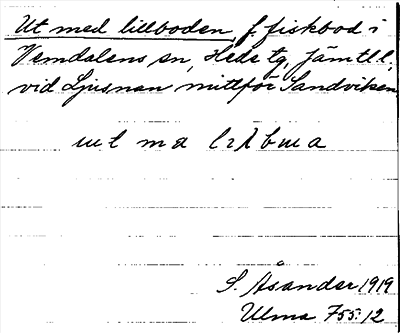 Ut med lillboden, f. fiskbod i
Vemdalens sn, Hede tg, Jämtl. l.,
vid Ljusnan mittför Sandviken.
S. Åsander 1919
Ulma 755:12